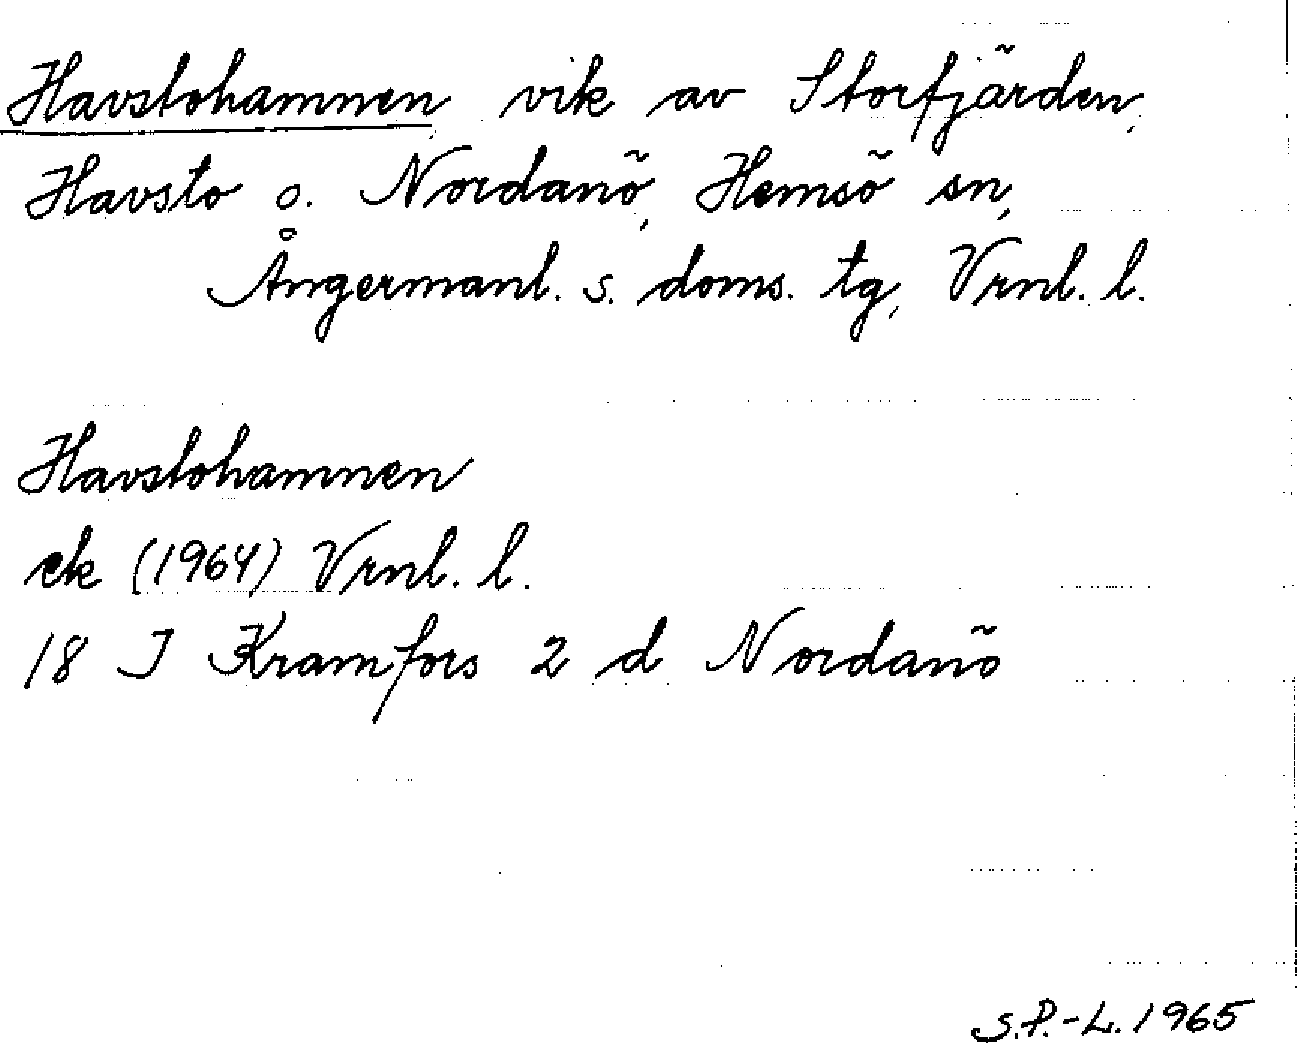 Havstohamnen vik av Storfjärden,
Havsto o. Nordanö, Hemsö sn,
Ångermanl. s. doms. tg, Vrnl. l.
Havstohamnen
ek (1964) Vrnl. l.
18 I Kramfors 2 d Nordanö
S.P.-L. 1965